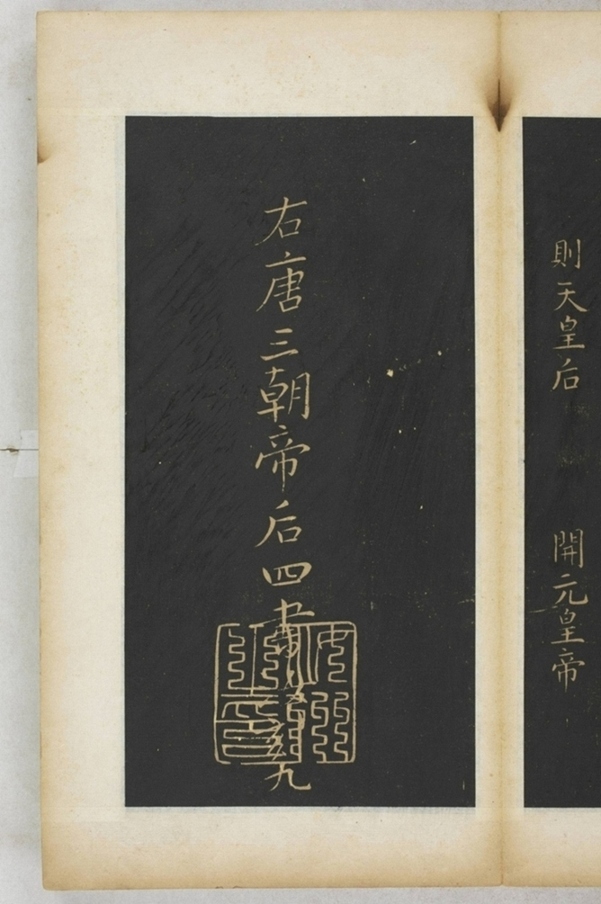 則天皇后 開元皇帝
右唐三朝帝后四書
九